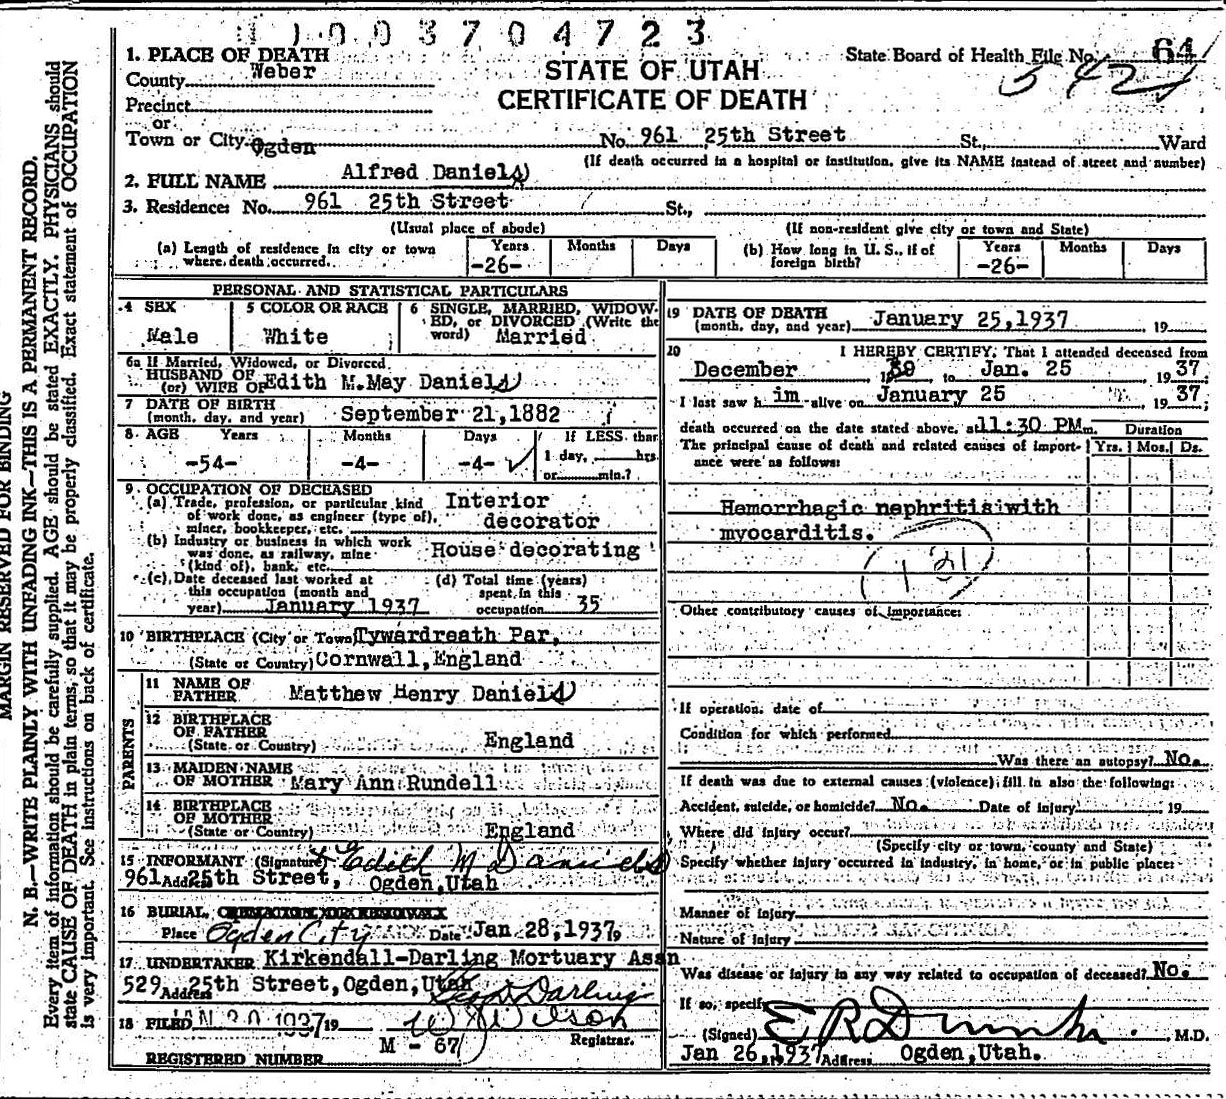 1003704723
1. PLACE OF DEATH
County Weber
STATE OF UTAH
CERTIFICATE OF DEATH
State Board of Health File No. 64
542
Precinct
or
Town or City Ogden No. 961 25th Street St., Ward
(If death occurred in a hospital or institution, give its NAME instead of street and number)
2. FULL NAME Alfred Daniels
3. Residence: No. 961 25th Street St.,
(Usual place of abode) (If non-resident give city or town and State)
(a) Length of residence in city or town where death occurred. Years -26- Months Days
(b) How long in U. S., if of foreign birth? Years -26- Months Days
PERSONAL AND STATISTICAL PARTICULARS
4 SEX Male
5 COLOR OR RACE White
6 SINGLE, MARRIED, WIDOWED, or DIVORCED (Write the word) Married
6a If Married, Widowed, or Divorced
HUSBAND OF
(or) WIFE OF Edith M.May Daniels
7 DATE OF BIRTH
(month, day, and year) September 21,1882
8 AGE Years -54- Months -4- Days -4- If LESS than 1 day, hrs. or min.?
9 OCCUPATION OF DECEASED
(a) Trade, profession, or particular kind of work done, as engineer (type of), miner, bookkeeper, etc. Interior decorator
(b) Industry or business in which work was done, as railway, mine (kind of), bank, etc. House decorating
(c) Date deceased last worked at this occupation (month and year) January 1937
(d) Total time (years) spent in this occupation 35
10 BIRTHPLACE (City or Town) Tywardreath Par,
(State or Country) Cornwall, England
PARENTS
11 NAME OF FATHER Matthew Henry Daniels
12 BIRTHPLACE OF FATHER
(State or Country) England
13 MAIDEN NAME OF MOTHER Mary Ann Rundell
14 BIRTHPLACE OF MOTHER
(State or Country) England
15 INFORMANT (Signature) Edith M Daniels
Address 961 25th Street, Ogden,Utah
16 BURIAL, CREMATION OR REMOVAL
Place Ogden City Date Jan 28,1937,
17 UNDERTAKER Kirkendall-Darling Mortuary Assn
Address 529 25th Street,Ogden,Utah
Darling
18 FILED JAN 30 1937 19
Wilson
Registrar.
M - 67
REGISTERED NUMBER
19 DATE OF DEATH
(month, day, and year) January 25,1937 19
20 I HEREBY CERTIFY, That I attended deceased from
December 19 to Jan. 25 1937,
I last saw him alive on January 25 1937,
death occurred on the date stated above, at 11:30 PM m. Duration
The principal cause of death and related causes of importance were as follows: Yrs. Mos. Ds.
Hemorrhagic nephritis with
myocarditis.
131
Other contributory causes of importance:
If operation, date of
Condition for which performed
Was there an autopsy? No.
If death was due to external causes (violence) fill in also the following:
Accident, suicide, or homicide? No. Date of injury 19
Where did injury occur?
(Specify city or town, county and State)
Specify whether injury occurred in industry, in home, or in public place:
Manner of injury
Nature of injury
Was disease or injury in any way related to occupation of deceased? No.
If so, specify
(Signed) E R , M.D.
Jan 26,1937 Address Ogden,Utah.
MARGIN RESERVED FOR BINDING
N. B.—WRITE PLAINLY WITH UNFADING INK—THIS IS A PERMANENT RECORD.
Every item of information should be carefully supplied. AGE should be stated EXACTLY. PHYSICIANS should
state CAUSE OF DEATH in plain terms, so that it may be properly classified. Exact statement of OCCUPATION
is very important. See instructions on back of certificate.